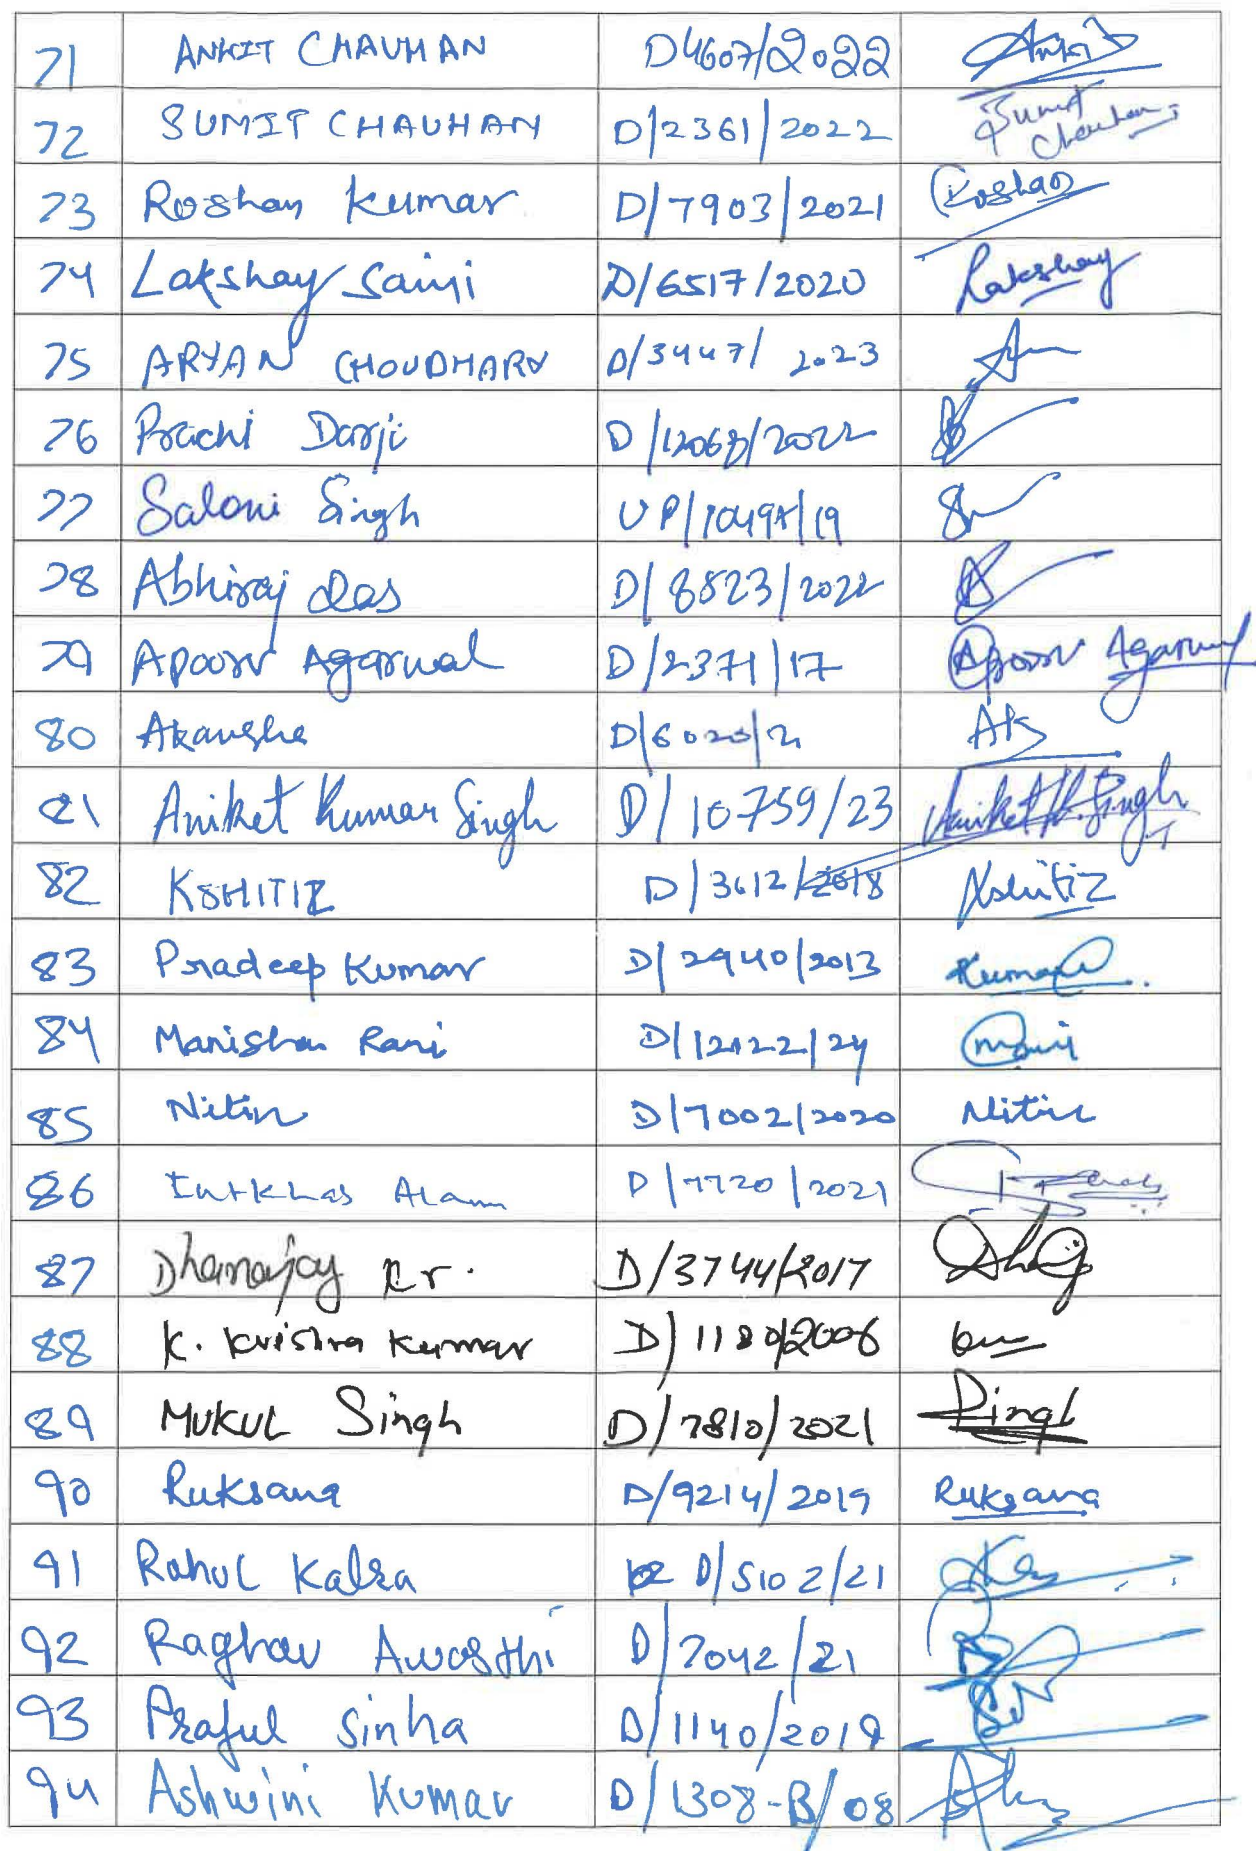 71 ANKIT CHAUHAN D4607/2022 Ankit
72 SUMIT CHAUHAN D/2361/2022 Sumit Chauhan
73 Roshan Kumar D/7903/2021 Roshan
74 Lakshay Saini D/6517/2020 Lakshay
75 ARYAN CHOUDHARY D/3447/2023
76 Prachi Darji D/12068/2022
77 Saloni Singh UP/10494/19
78 Abhiraj Das D/8523/2022
79 Apoorv Agarwal D/2371/17 Apoorv Agarwal
80 Akansha D/6020/21 Ak
81 Aniket Kumar Singh D/10759/23 Aniket K. Singh
82 KSHITIZ D/3612/2018 Kshitiz
83 Pradeep Kumar D/2940/2013 Kumar
84 Manisha Rani D/12122/24 Rani
85 Nitin D/7002/2020 Nitin
86 Intkhab Alam D/7720/2021
87 Dhananjay Kr. D/3744/2017
88 K. Krishna Kumar D/1180/2006
89 MUKUL Singh D/7810/2021 Singh
90 Ruksana D/9214/2019 Ruksana
91 Rahul Kalra D/5102/21
92 Raghav Awasthi D/7042/21
93 Praful Sinha D/1140/2019
94 Ashwini Kumar D/1308-B/08